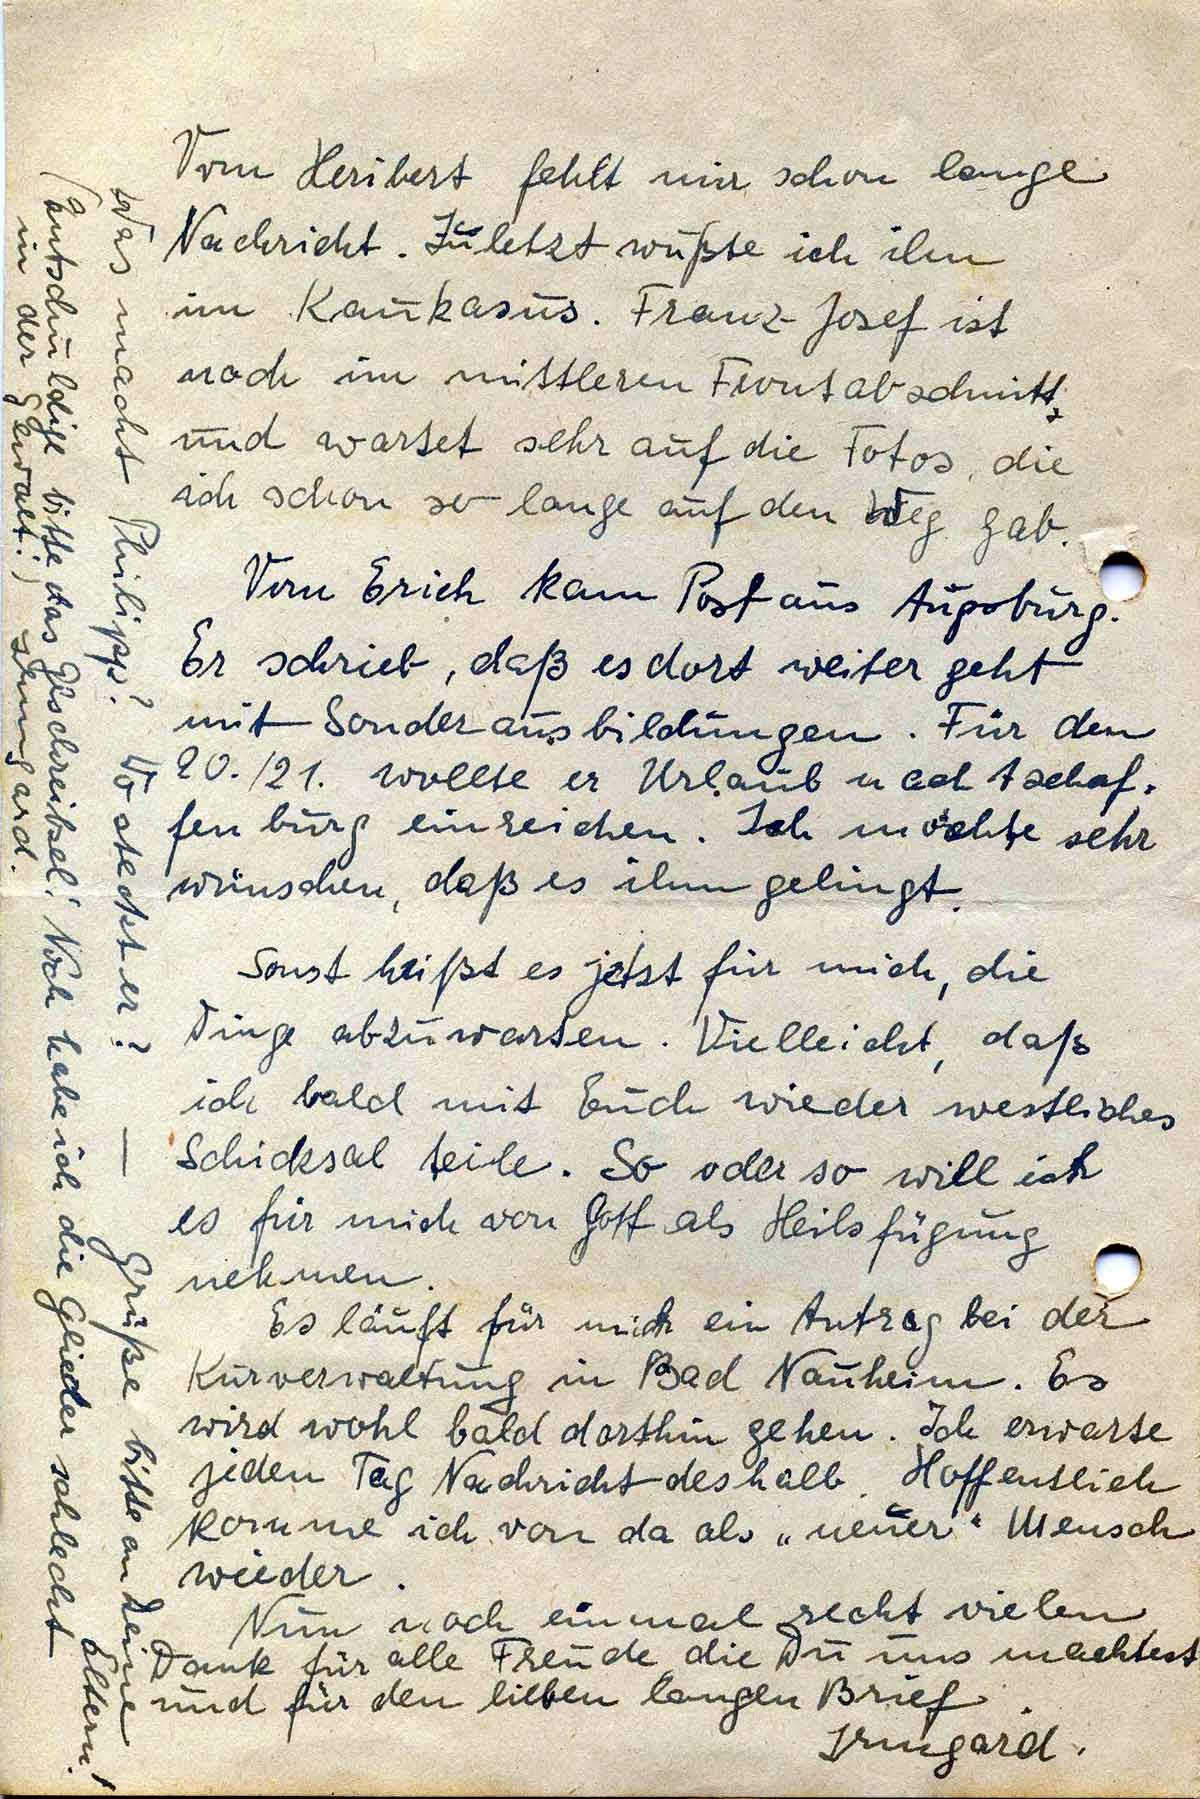 Vom Heribert fehlt mir schon lange
Nachricht. Zuletzt wußte ich ihn
im Kaukasus. Franz-Josef ist
noch im mittleren Frontabschnitt,
und wartet sehr auf die Fotos, die
ich schon so lange auf den Weg gab.
Vom Erich kam Post aus Augsburg.
Er schrieb, daß es dort weiter geht
mit Sonderausbildungen. Für den
20./21. wollte er Urlaub nach Aschaf-
fenburg einreichen. Ich möchte sehr
wünschen, daß es ihm gelingt.
Sonst heißt es jetzt für mich, die
Dinge abzuwarten. Vielleicht, daß
ich bald mit Euch wieder westliches
Schicksal teile. So oder so will ich
es für mich von Gott als Heilsfügung
nehmen.
Es läuft für mich ein Antrag bei der
Kurverwaltung in Bad Nauheim. Es
wird wohl bald dorthin gehen. Ich erwarte
jeden Tag Nachricht deshalb. Hoffentlich
komme ich von da als „neuer“ Mensch
wieder.
Nun noch einmal recht vielen
Dank für alle Freude die Du uns machtest
und für den lieben langen Brief.
Irmgard.
Was macht Philipp? Wo steckt er? — Grüße bitte an Deine Eltern!
(Entschuldige bitte das Geschreibsel! Noch habe ich die Glieder schlecht
in der Gewalt!) Irmgard.